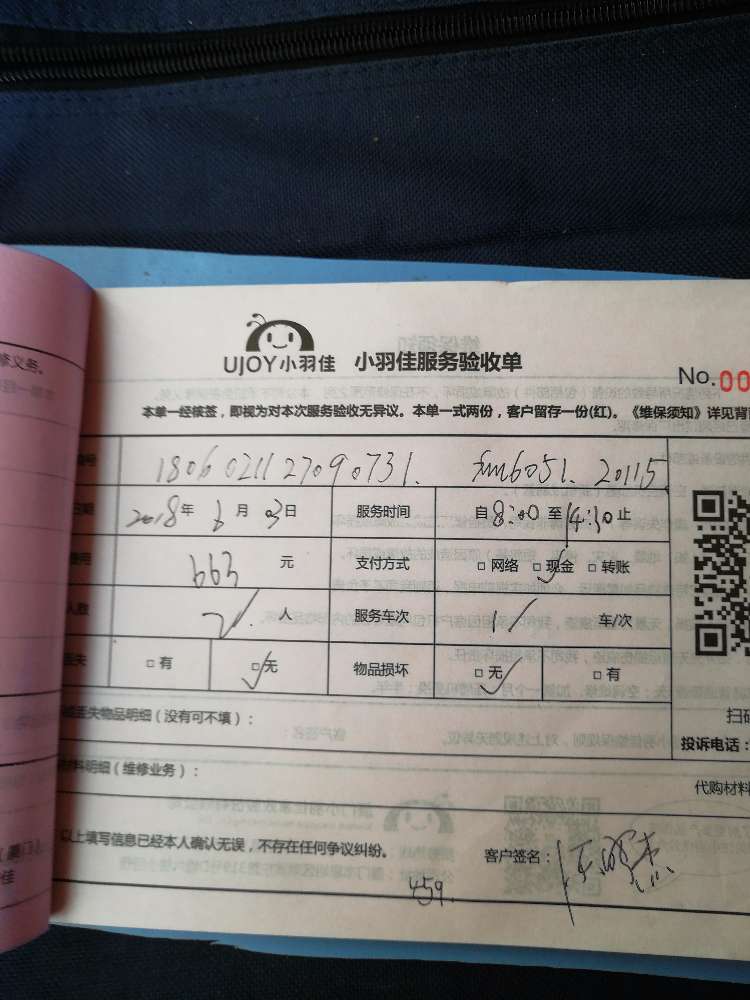 UJOY小羽佳 小羽佳服务验收单
No.00
本单一经核签，即视为对本次服务验收无异议。本单一式两份，客户留存一份(红)。《维保须知》详见背
号 1806021127090731. 20115
日期 2018年6月03日 服务时间 自8:00至14:30止
费用 663元 支付方式 □网络 □现金 □转账
人数 2人 服务车次 1车/次
丢失 □有 □无 物品损坏 □无 □有
丢失物品明细（没有可不填）：
扫码
投诉电话：
材料明细（维修业务）：
代购材料
以上填写信息已经本人确认无误，不存在任何争议纠纷。 客户签名：
459.